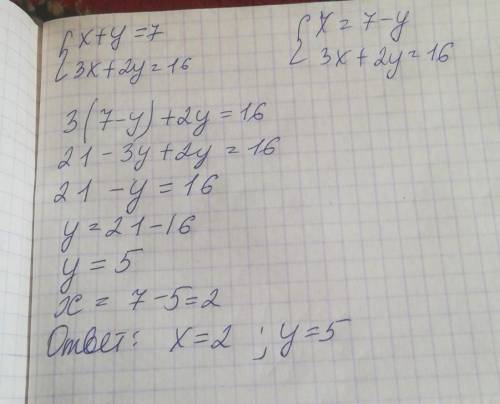 { x+y=7
3x+2y=16
{ x=7-y
3x+2y=16
3(7-y)+2y=16
21-3y+2y=16
21-y=16
y=21-16
y=5
x=7-5=2
Ответ: x=2 ; y=5